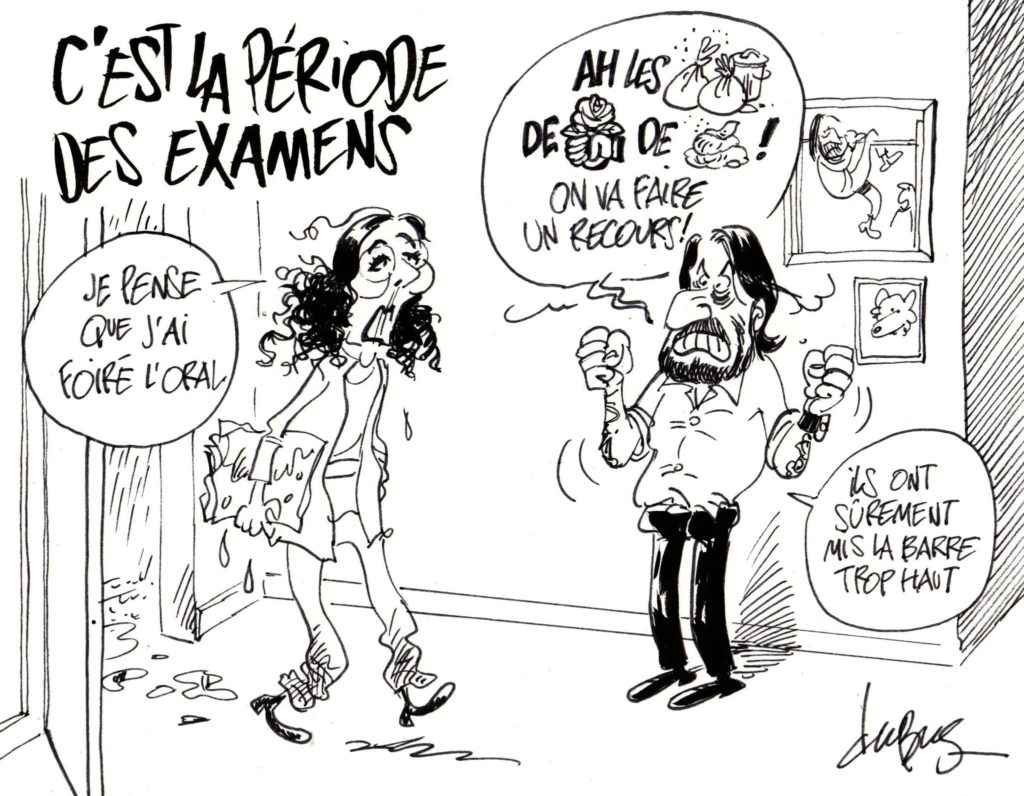 C'EST LA PÉRIODE
DES EXAMENS
JE PENSE
QUE J'AI
FOIRÉ L'ORAL
AH LES
DE DE !
ON VA FAIRE
UN RECOURS!
ILS ONT
SÛREMENT
MIS LA BARRE
TROP HAUT
duBus